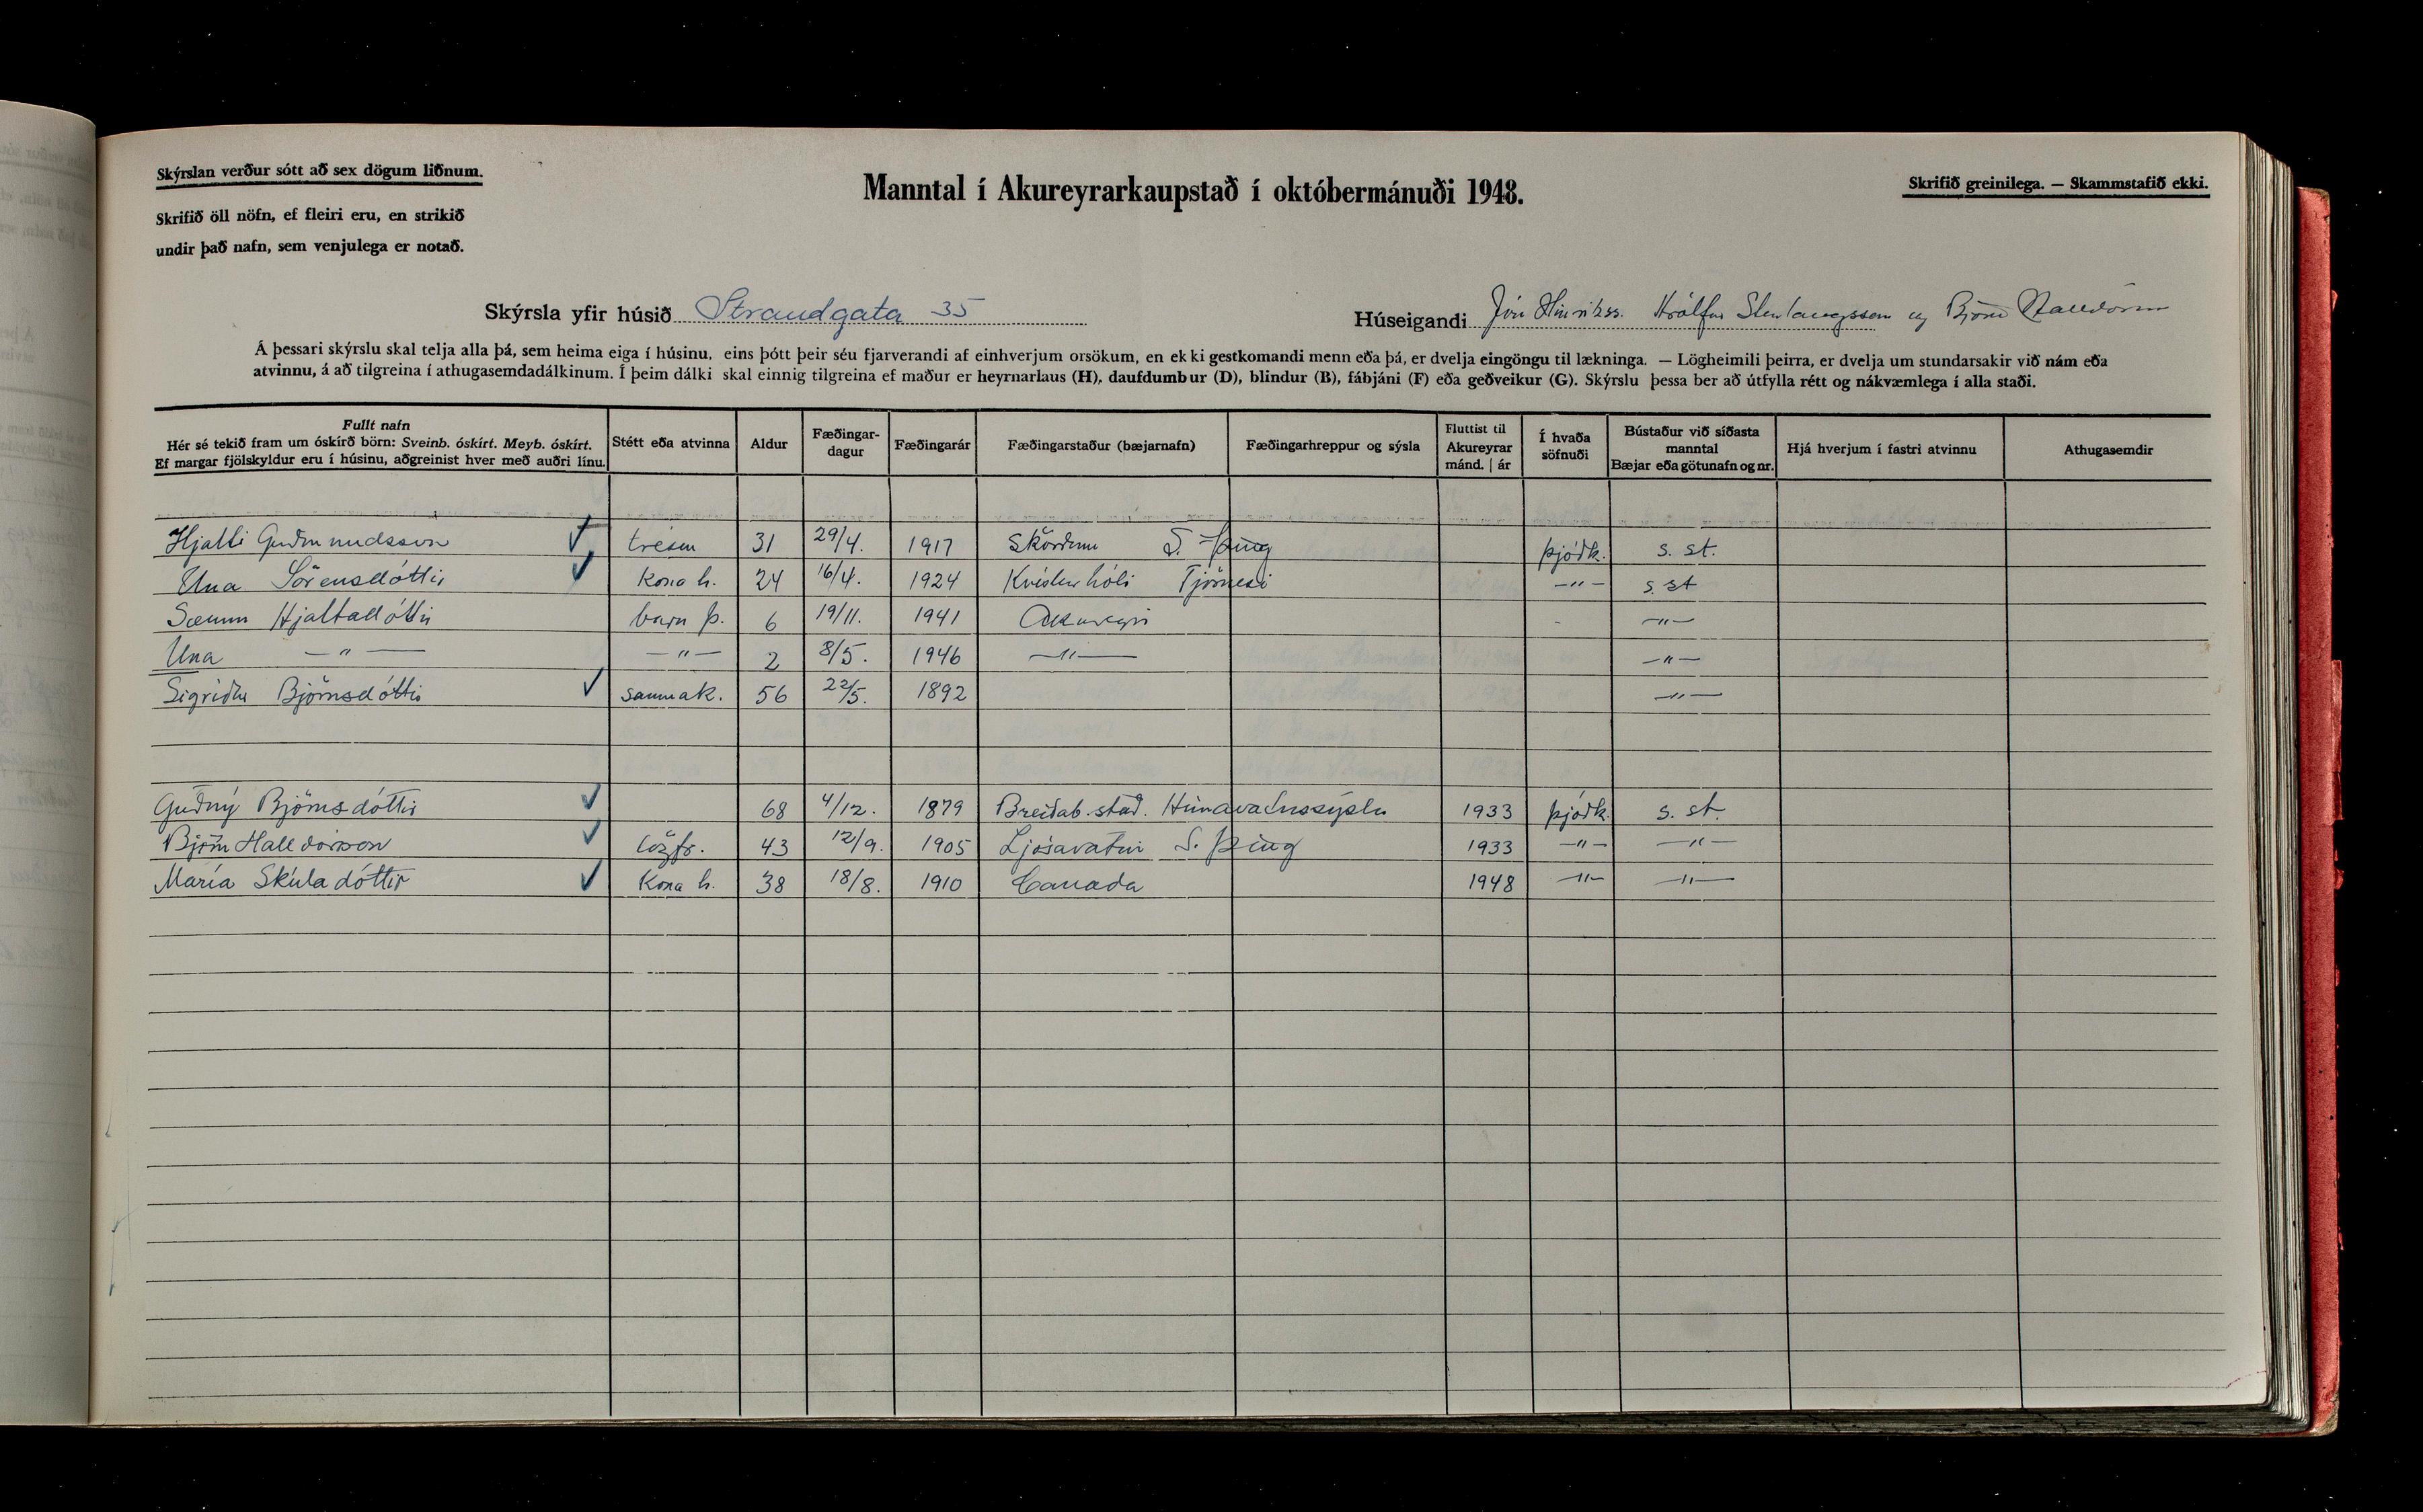 Skýrslan verður sótt að sex dögum liðnum.
Manntal í Akureyrarkaupstað í októbermánuði 1948.
Skrifið greinilega. — Skammstafið ekki.
Skrifið öll nöfn, ef fleiri eru, en strikið
undir það nafn, sem venjulega er notað.
Skýrsla yfir húsið Strandgata 35
Húseigandi Jón Hinrikss. Hrólfur Sturlaugsson og Björn Halldórsson
Á þessari skýrslu skal telja alla þá, sem heima eiga í húsinu, eins þótt þeir séu fjarverandi af einhverjum orsökum, en ekki gestkomandi menn eða þá, er dvelja eingöngu til lækninga. — Lögheimili þeirra, er dvelja um stundarsakir við nám eða
atvinnu, á að tilgreina í athugasemdadálkinum. Í þeim dálki skal einnig tilgreina ef maður er heyrnarlaus (H), daufdumbur (D), blindur (B), fábjáni (F) eða geðveikur (G). Skýrslu þessa ber að útfylla rétt og nákvæmlega í alla staði.
Fullt nafn
Hér sé tekið fram um óskírð börn: Sveinb. óskírt. Meyb. óskírt.
Ef margar fjölskyldur eru í húsinu, aðgreinist hver með auðri línu.
Stétt eða atvinna
Aldur
Fæðingar-
dagur
Fæðingarár
Fæðingarstaður (bæjarnafn)
Fæðingarhreppur og sýsla
Fluttist til
Akureyrar
mánd. | ár
Í hvaða
söfnuði
Bústaður við síðasta
manntal
Bæjar eða götunafn og nr.
Hjá hverjum í fastri atvinnu
Athugasemdir
Hjalti Guðmundsson ✓ trésm 31 29/4. 1917 Skörðum S. Þing þjóðk. s. st.
Una Sörensdóttir ✓ Kona h. 24 16/4. 1924 Kvíslarhóli Tjörnesi —"— s. st
Sæunn Hjaltadóttir barn þ. 6 19/11. 1941 Akureyri —"—
Una —"— —"— 2 8/5. 1946 —"— —"—
Sigríður Björnsdóttir ✓ saumak. 56 22/5. 1892 —"—
Guðný Björnsdóttir ✓ 68 4/12. 1879 Breiðab.stað. Húnavatnssýslu 1933 þjóðk. s. st.
Björn Halldórsson ✓ lögfr. 43 12/9. 1905 Ljósavatni S. Þing 1933 —"— —"—
María Skúladóttir ✓ Kona h. 38 18/8. 1910 Canada 1948 —"— —"—